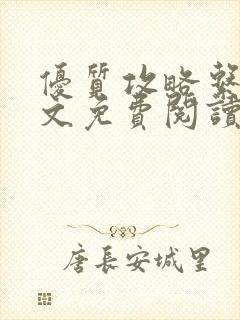 優質攻略系
文免費閱讀
唐長安城里